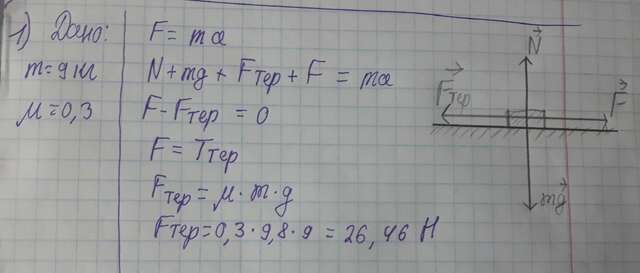 1) Дано:
m = 9 кг
μ = 0,3
F = ma
N + mg + Fтер + F = ma
F - Fтер = 0
F = Tтер
Fтер = μ · m · g
Fтер = 0,3 · 9,8 · 9 = 26,46 Н
N⃗
F⃗тер
F⃗
mg⃗